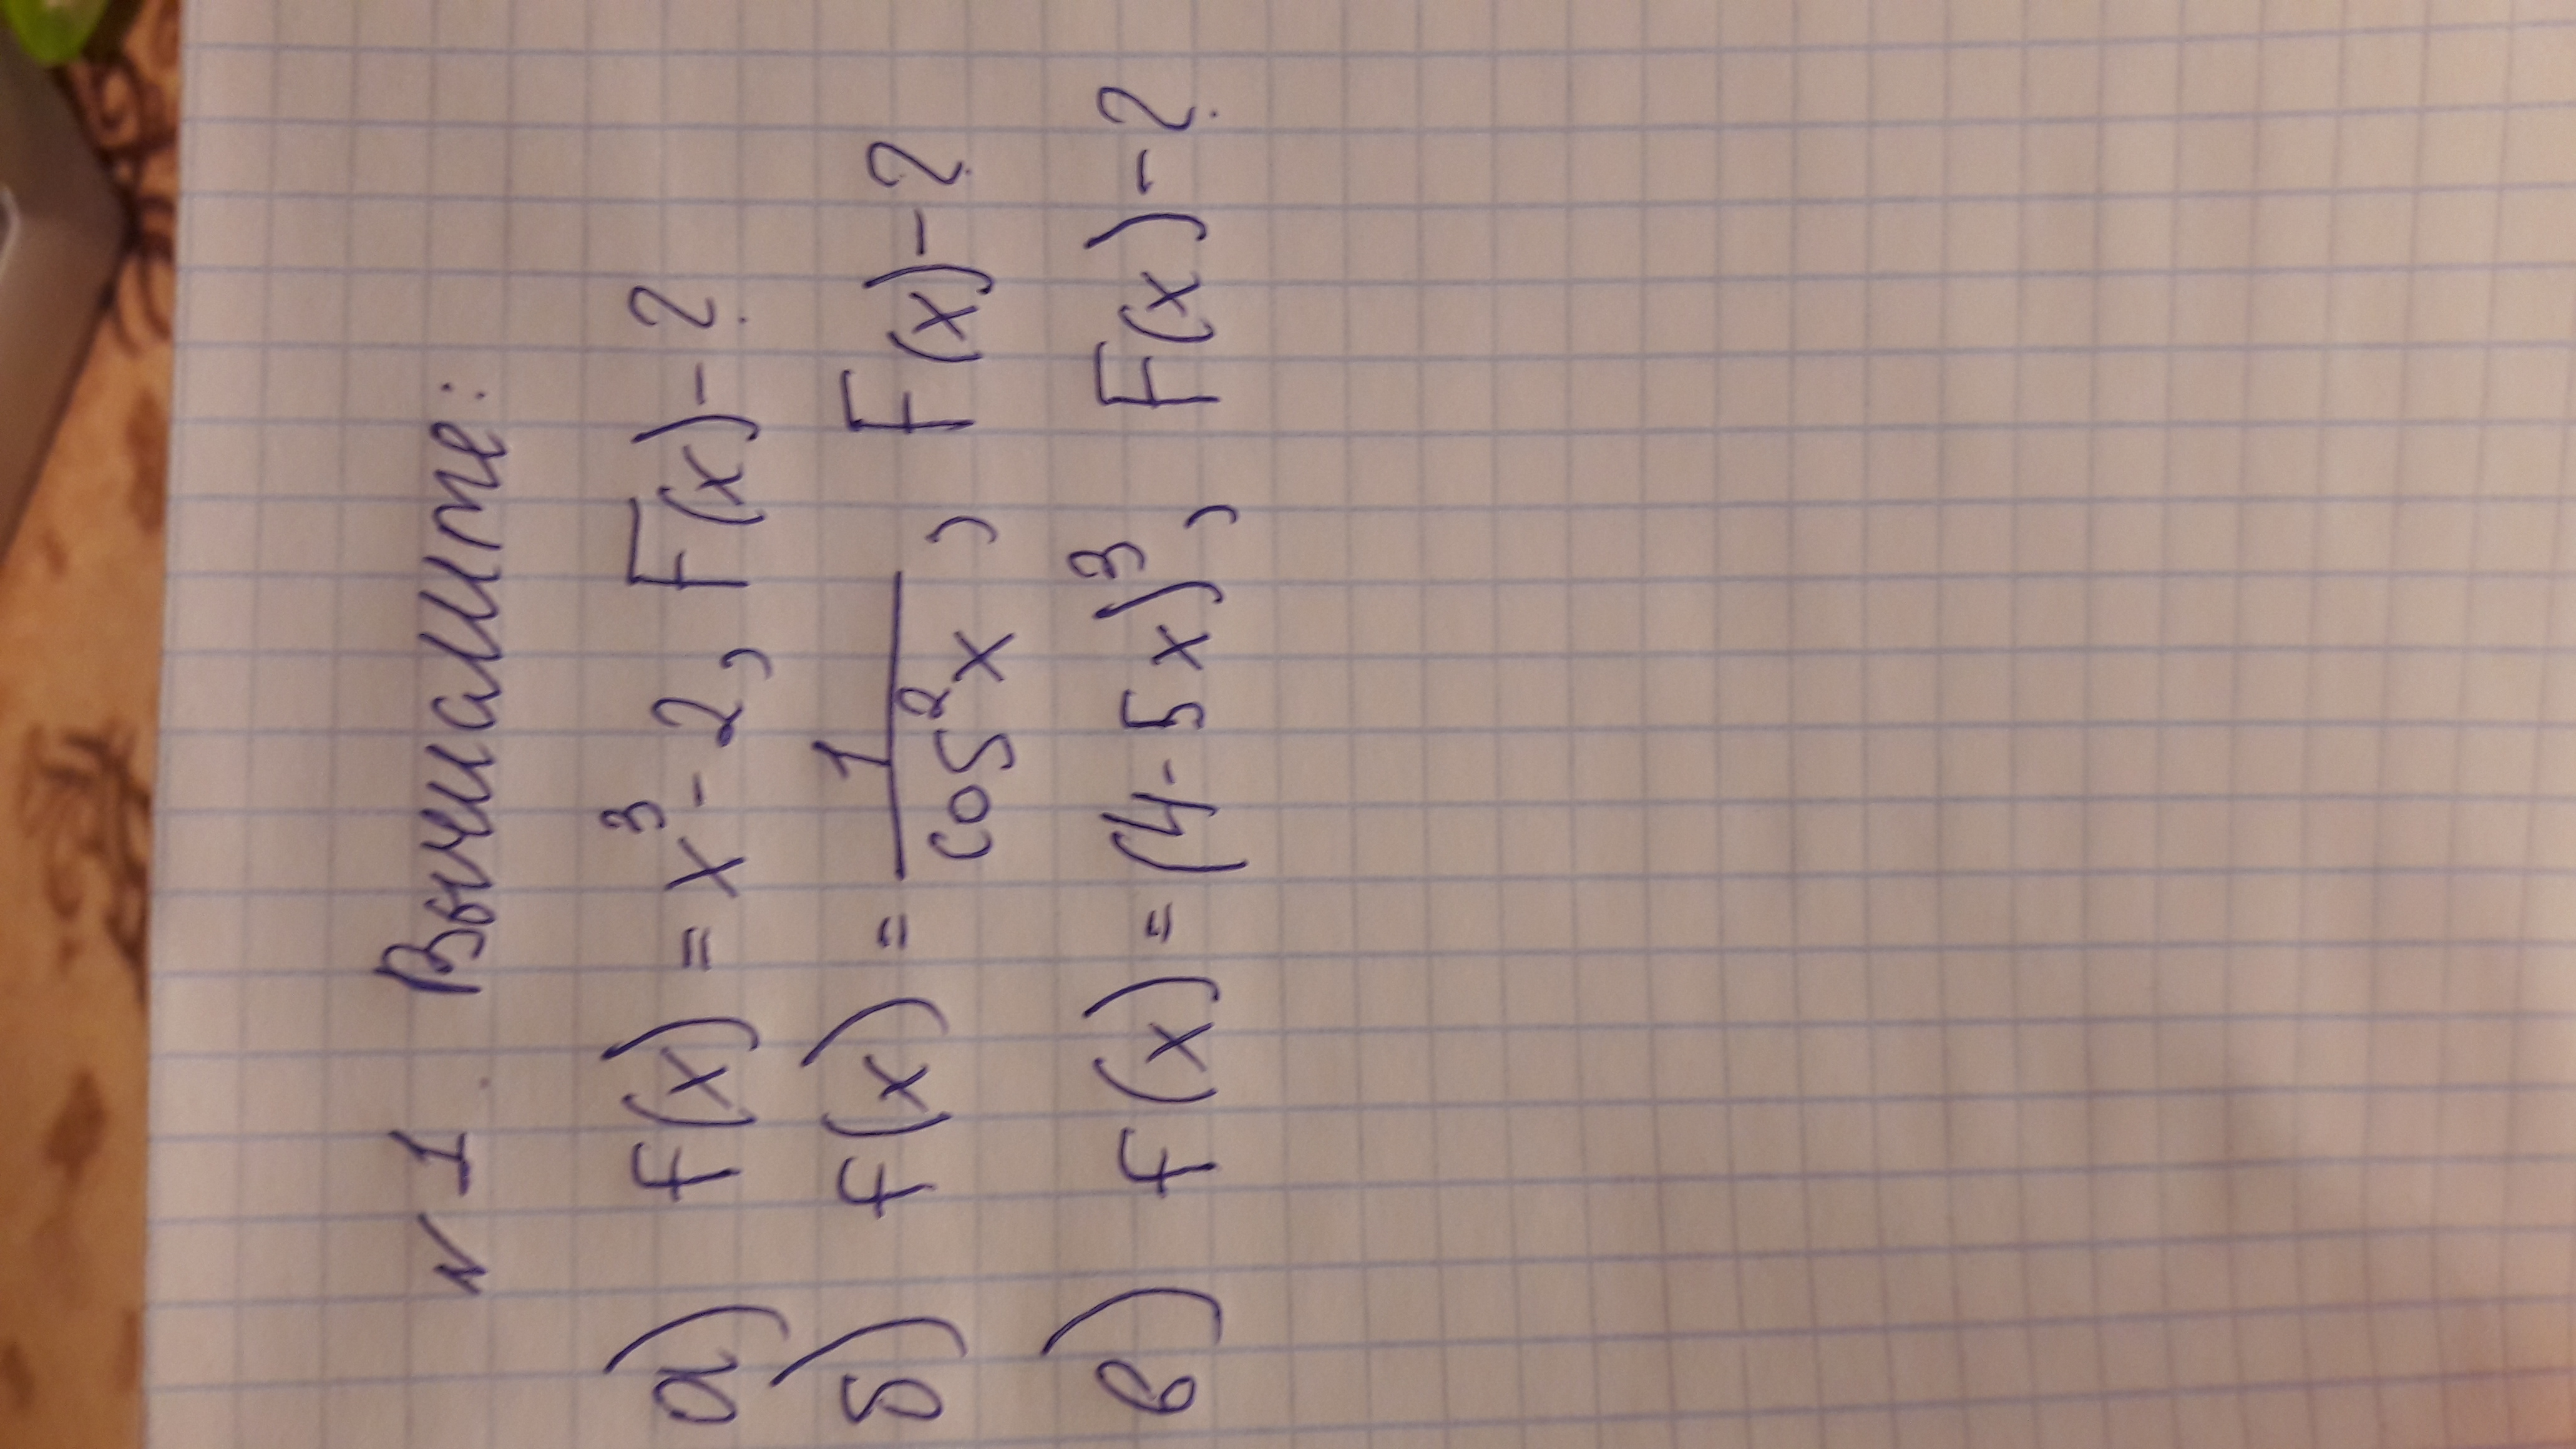 №1. Вычислите:
а) f(x) = x³ - 2, F(x) - ?
б) f(x) = 1/cos²x, F(x) - ?
в) f(x) = (4 - 5x)³, F(x) - ?